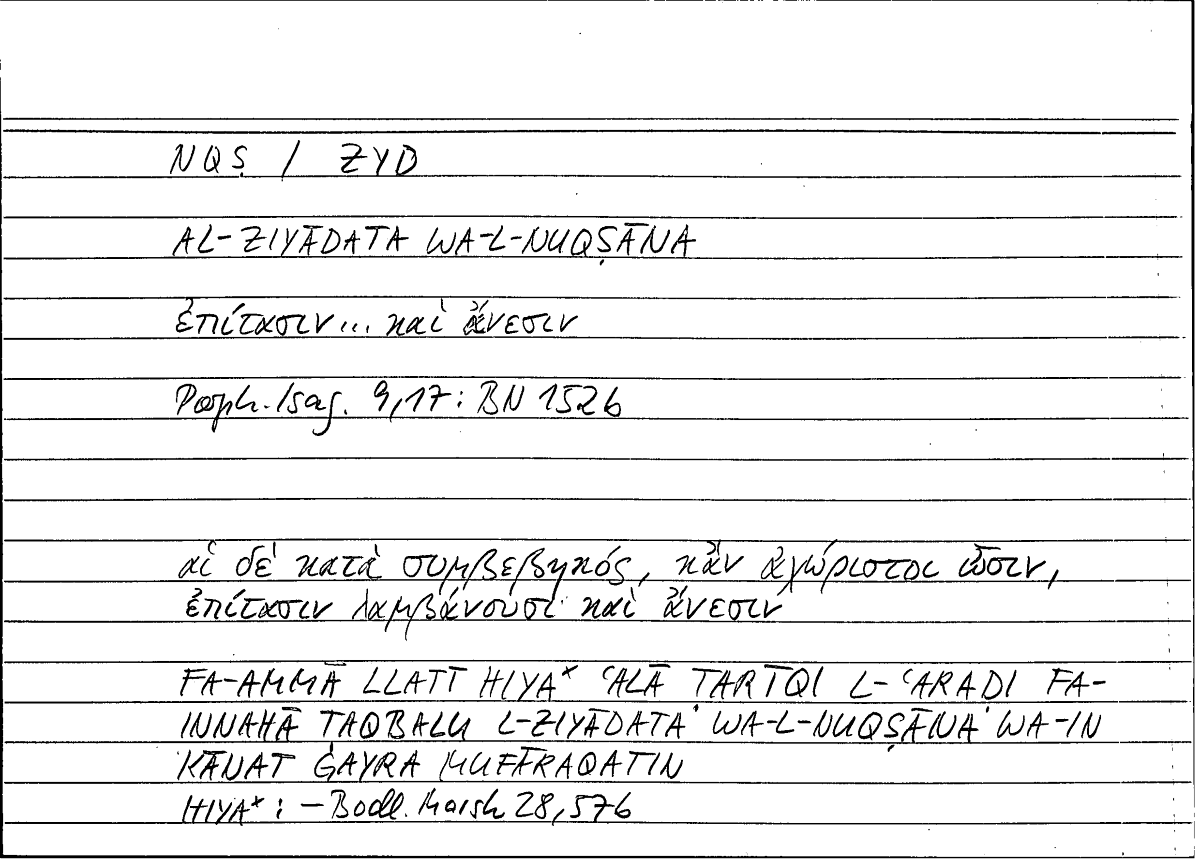 NQṢ / ZYD
AL-ZIYĀDATA WA-L-NUQṢĀNA
ἐπίτασιν... καὶ ἄνεσιν
Porph. Isag. 9,17: BN 152b
αἱ δὲ κατὰ συμβεβηκός, κἂν ἀχώριστοι ὦσιν,
ἐπίτασιν λαμβάνουσι καὶ ἄνεσιν
FA-AMMĀ LLATĪ HIYA* ʿALĀ ṬARĪQI L-ʿARAḌI FA-
INNAHĀ TAQBALU L-ZIYĀDATA WA-L-NUQṢĀNA WA-IN
KĀNAT ĠAYRA MUFĀRAQATIN
HIYA*: – Bodl. Marsh 28,57b